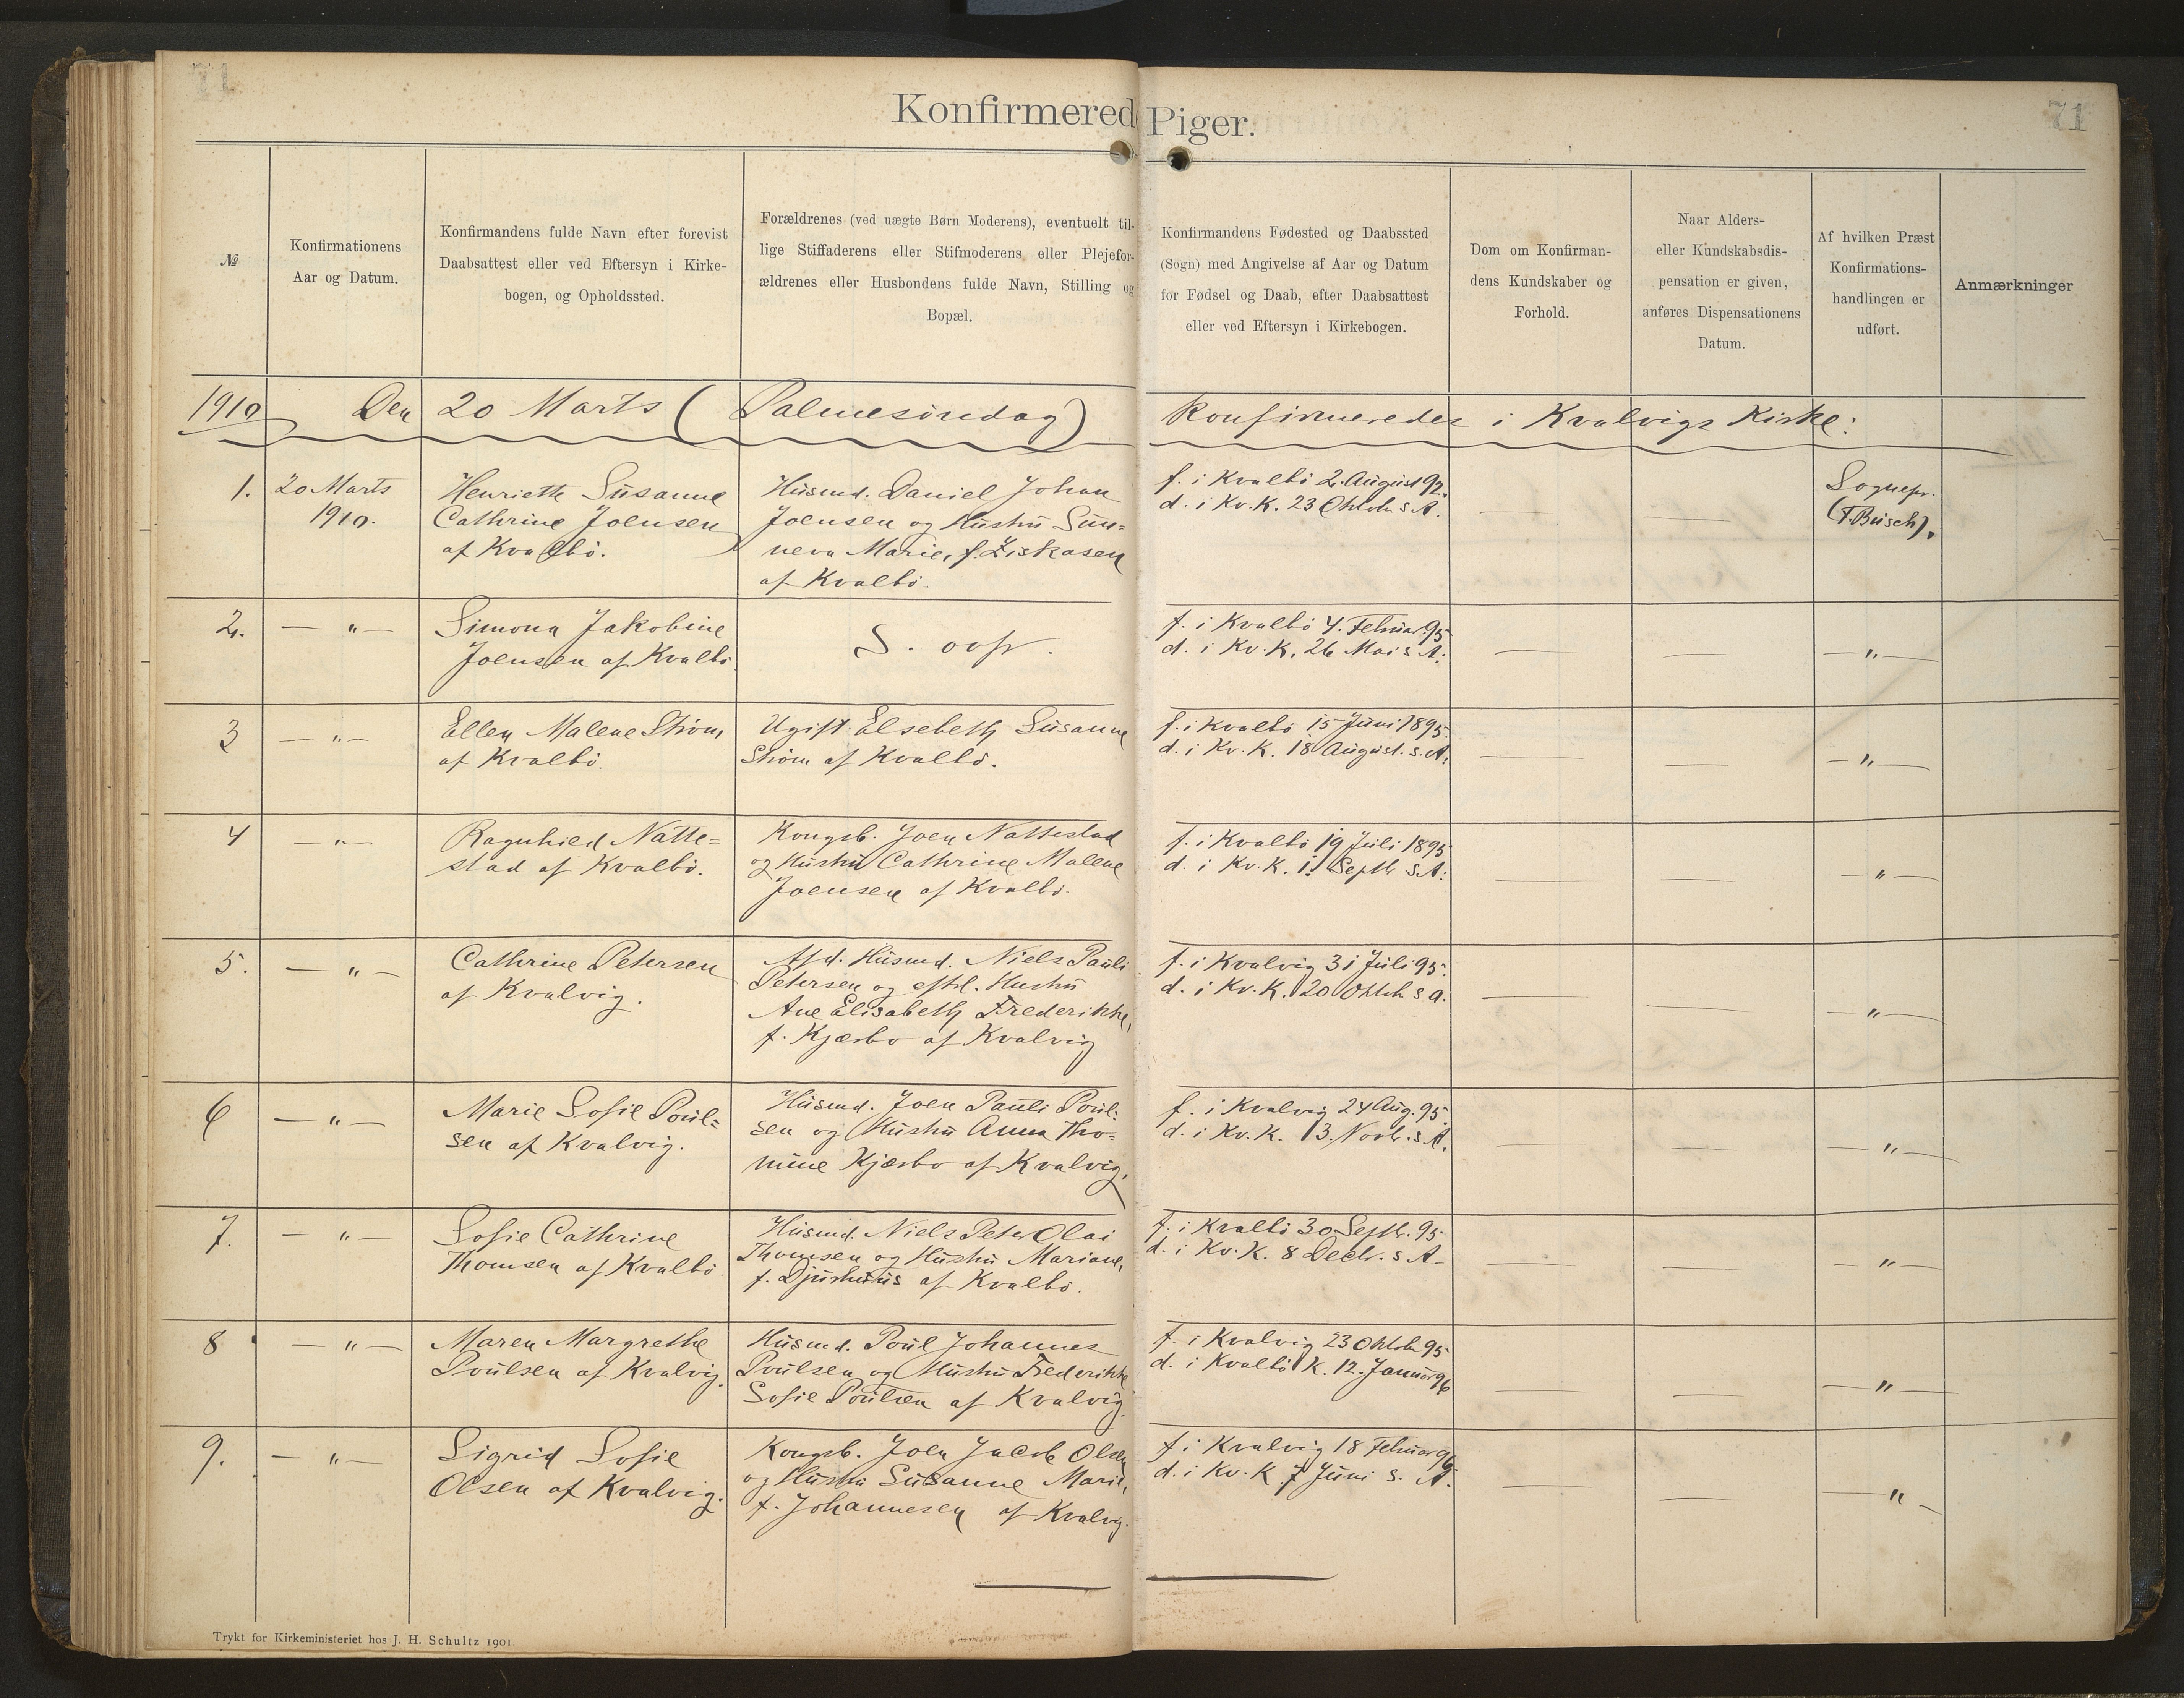 71
Konfirmerede Piger.
71
№
Konfirmationens
Aar og Datum.
Konfirmandens fulde Navn efter forevist
Daabsattest eller ved Eftersyn i Kirke-
bogen, og Opholdssted.
Forældrenes (ved uægte Børn Moderens), eventuelt til-
lige Stiffaderens eller Stifmoderens eller Plejefor-
ældrenes eller Husbondens fulde Navn, Stilling og
Bopæl.
Konfirmandens Fødested og Daabssted
(Sogn) med Angivelse af Aar og Datum
for Fødsel og Daab, efter Daabsattest
eller ved Eftersyn i Kirkebogen.
Dom om Konfirman-
dens Kundskaber og
Forhold.
Naar Alders-
eller Kundskabsdis-
pensation er given,
anføres Dispensationens
Datum.
Af hvilken Præst
Konfirmations-
handlingen er
udført.
Anmærkninger
1910 Den 20 Marts (Palmesøndag) Konfirmeredes i Kvalvigs Kirke:
1.
20 Marts
1910.
Henriette Susanne
Cathrine Joensen
af Kvalbö.
Husmd. Daniel Johan
Joensen og Hustru Sun=
neva Marie, f. Ziskasen
af Kvalbö.
f. i Kvalbö 2. August 92.
d. i Kv. K. 23 Oktobr s A.
— —
Sognepr.
(F. Busch).
2.
— " —
Simona Jakobine
Joensen af Kvalbö.
S. ovfr.
f. i Kvalbö 4. Februar 95
d. i Kv. K. 26 Mai s A.
— —
— " —
3
— " —
Ellen Malene Ström
af Kvalbö.
Ugift Elsebeth Susanne
Ström af Kvalbö.
f. i Kvalbö 15 Juni 1895.
d. i Kv. K. 18 August. s. A.
— —
— " —
4
— " —
Ragnhied Natte=
stad af Kvalbö.
Kongsb. Joen Nattestad
og Hustru Cathrine Malene
Joensen af Kvalbö.
f. i Kvalbö 19 Juli 1895
d. i Kv. K. 1. Septbr s A.
— —
— " —
5.
— " —
Cathrine Petersen
af Kvalvig.
Afd. Husmd. Niels Pauli
Petersen og eftl. Hustru
Ane Elisabeth Frederikke,
f. Kjærbo af Kvalvig
f. i Kvalvig 31 Juli 95.
d. i Kv. K. 20 Oktbr s a.
— —
— " —
6
— " —
Marie Sofie Poul=
sen af Kvalvig.
Husmd. Joen Pauli Poul=
sen og Hustru Anna Tho=
mine Kjærbo af Kvalvig.
f. i Kvalvig 24 Aug. 95.
d. i Kv. K. 3. Novbr. s A.
— —
— " —
7.
— " —
Sofie Cathrine
Thomsen af Kvalbö.
Husmd. Niels Peter Olai
Thomsen og Hustru Mariane,
f. Djurhuus af Kvalbö.
f. i Kvalbö 30 Septbr. 95.
d. i Kv. K. 8 Decbr. s A.
— —
— " —
8
— " —
Maren Margrethe
Poulsen af Kvalvig.
Husmd. Poul Johannes
Poulsen og Hustru Frederikke
Sofie Poulsen af Kvalvig.
f. i Kvalvig 23 Oktobr 95
d. i Kvalbö K. 12. Januar 96
— —
— " —
9.
— " —
Sigrid Sofie
Olsen af Kvalvig.
Kongsb. Joen Jacob Olsen
og Hustru Susanne Marie,
f. Johannesen af Kvalvig.
f. i Kvalvig 18 Februar 96
d. i Kv. K. 7 Juni s. A.
— —
— " —
Trykt for Kirkeministeriet hos J. H. Schultz 1901.